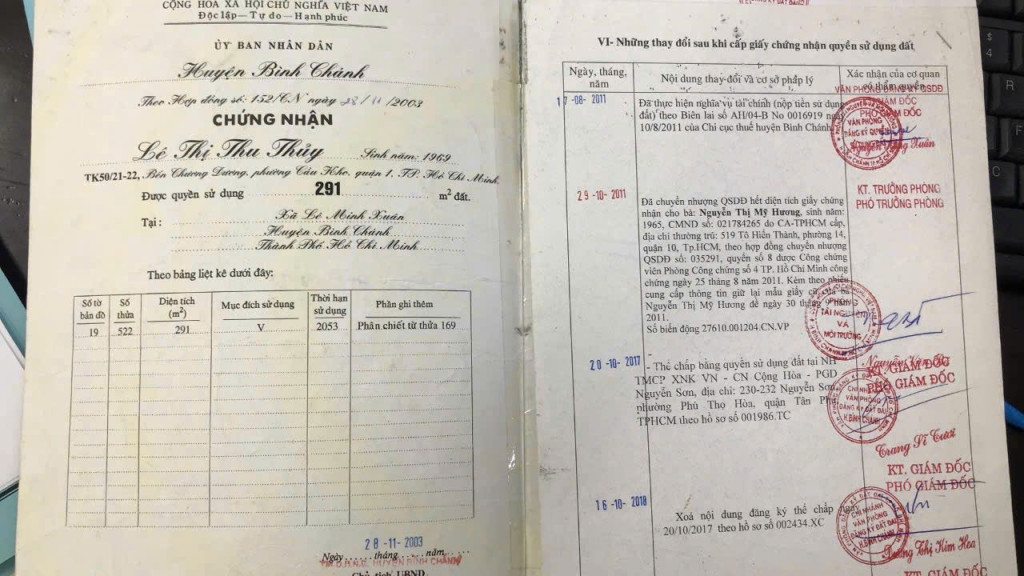 CỘNG HÒA XÃ HỘI CHỦ NGHĨA VIỆT NAM
Độc lập — Tự do — Hạnh phúc
ỦY BAN NHÂN DÂN
Huyện Bình Chánh
Theo Hợp đồng số: 152/CN ngày 28/11/2003
CHỨNG NHẬN
Lê Thị Thu Thủy Sinh năm: 1969
TK50/21-22, Bến Chương Dương, phường Cầu Kho, quận 1. TP. Hồ Chí Minh
Được quyền sử dụng 291 m² đất.
Tại: Xã Lê Minh Xuân
Huyện Bình Chánh
Thành Phố Hồ Chí Minh
Theo bảng liệt kê dưới đây:
Số tờ bản đồ Số thửa Diện tích (m²) Mục đích sử dụng Thời hạn sử dụng Phần ghi thêm
19 522 291 V 2053 Phân chiết từ thửa 169
28-11-2003
Ngày tháng năm
TM.U.B.N.D. HUYỆN BÌNH CHÁNH
Chủ tịch UBND
VI- Những thay đổi sau khi cấp giấy chứng nhận quyền sử dụng đất
Ngày, tháng, năm Nội dung thay đổi và cơ sở pháp lý Xác nhận của cơ quan có thẩm quyền
17-08-2011
Đã thực hiện nghĩa vụ tài chính (nộp tiền sử dụng
đất) theo Biên lai số AH/04-B No 0016919 ngày
10/8/2011 của Chi cục thuế huyện Bình Chánh
VĂN PHÒNG ĐĂNG KÝ QSDĐ
GIÁM ĐỐC
PHÓ GIÁM ĐỐC
VĂN PHÒNG
ĐĂNG KÝ QUYỀN
Xuân
29-10-2011
Đã chuyển nhượng QSDĐ hết diện tích giấy chứng
nhận cho bà: Nguyễn Thị Mỹ Hương, sinh năm:
1965, CMND số: 021784265 do CA-TPHCM cấp,
địa chỉ thường trú: 519 Tô Hiến Thành, phường 14,
quận 10, Tp.HCM, theo hợp đồng chuyển nhượng
QSDĐ số: 035291, quyển số 8 được Công chứng
viên Phòng Công chứng số 4 TP. Hồ Chí Minh công
chứng ngày 25 tháng 8 năm 2011. Kèm theo nhiều
cung cấp thông tin giữ lại mẫu giấy cũ của bà
Nguyễn Thị Mỹ Hương đề ngày 30 tháng
2011.
Số biến động 27610.001204.CN.VP
KT. TRƯỞNG PHÒNG
PHÓ TRƯỞNG PHÒNG
PHÒNG
TÀI NGUYÊN
VÀ
MÔI TRƯỜNG
20-10-2017
- Thế chấp bằng quyền sử dụng đất tại NH
TMCP XNK VN - CN Cộng Hòa - PGD
Nguyễn Sơn, địa chỉ: 230-232 Nguyễn Sơn,
phường Phú Thọ Hòa, quận Tân Phú,
TPHCM theo hồ sơ số 001986.TC
KT. GIÁM ĐỐC
PHÓ GIÁM ĐỐC
CHI NHÁNH
VĂN PHÒNG
ĐĂNG KÝ ĐẤT ĐAI
H.BÌNH CHÁNH
Trang Sĩ Tươi
16-10-2018
Xoá nội dung đăng ký thế chấp
20/10/2017 theo hồ sơ số 002434.XC
KT. GIÁM ĐỐC
PHÓ GIÁM ĐỐC
CHI NHÁNH
VĂN PHÒNG
ĐĂNG KÝ ĐẤT ĐAI
H.BÌNH CHÁNH
Dương Thị Kim Hoa
KT. GIÁM ĐỐC